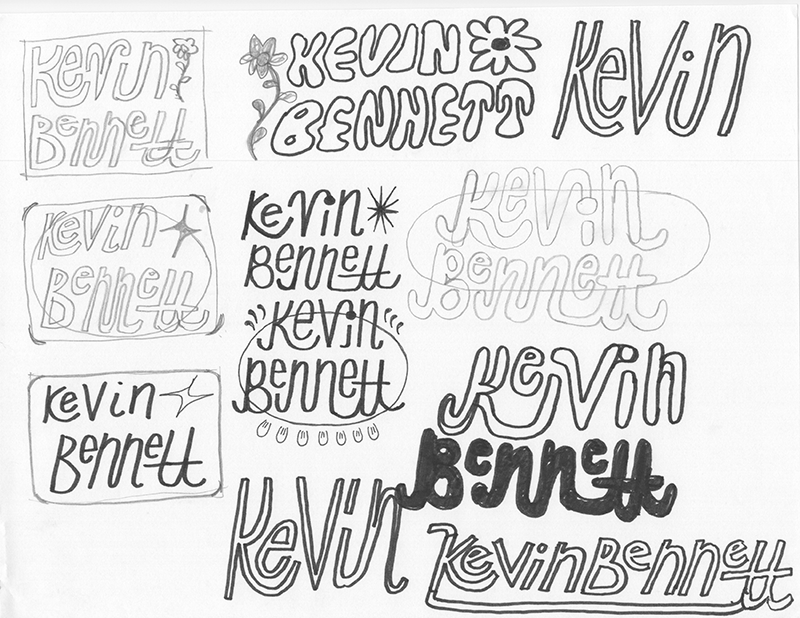 Kevin
Bennett
KEVIN
BENNETT
KeViN
Kevin
Bennett
Kevin
Bennett
Kevin
Bennett
Kevin
Bennett
Kevin
Bennett
Kevin
Bennett
KeVin
KevinBennett